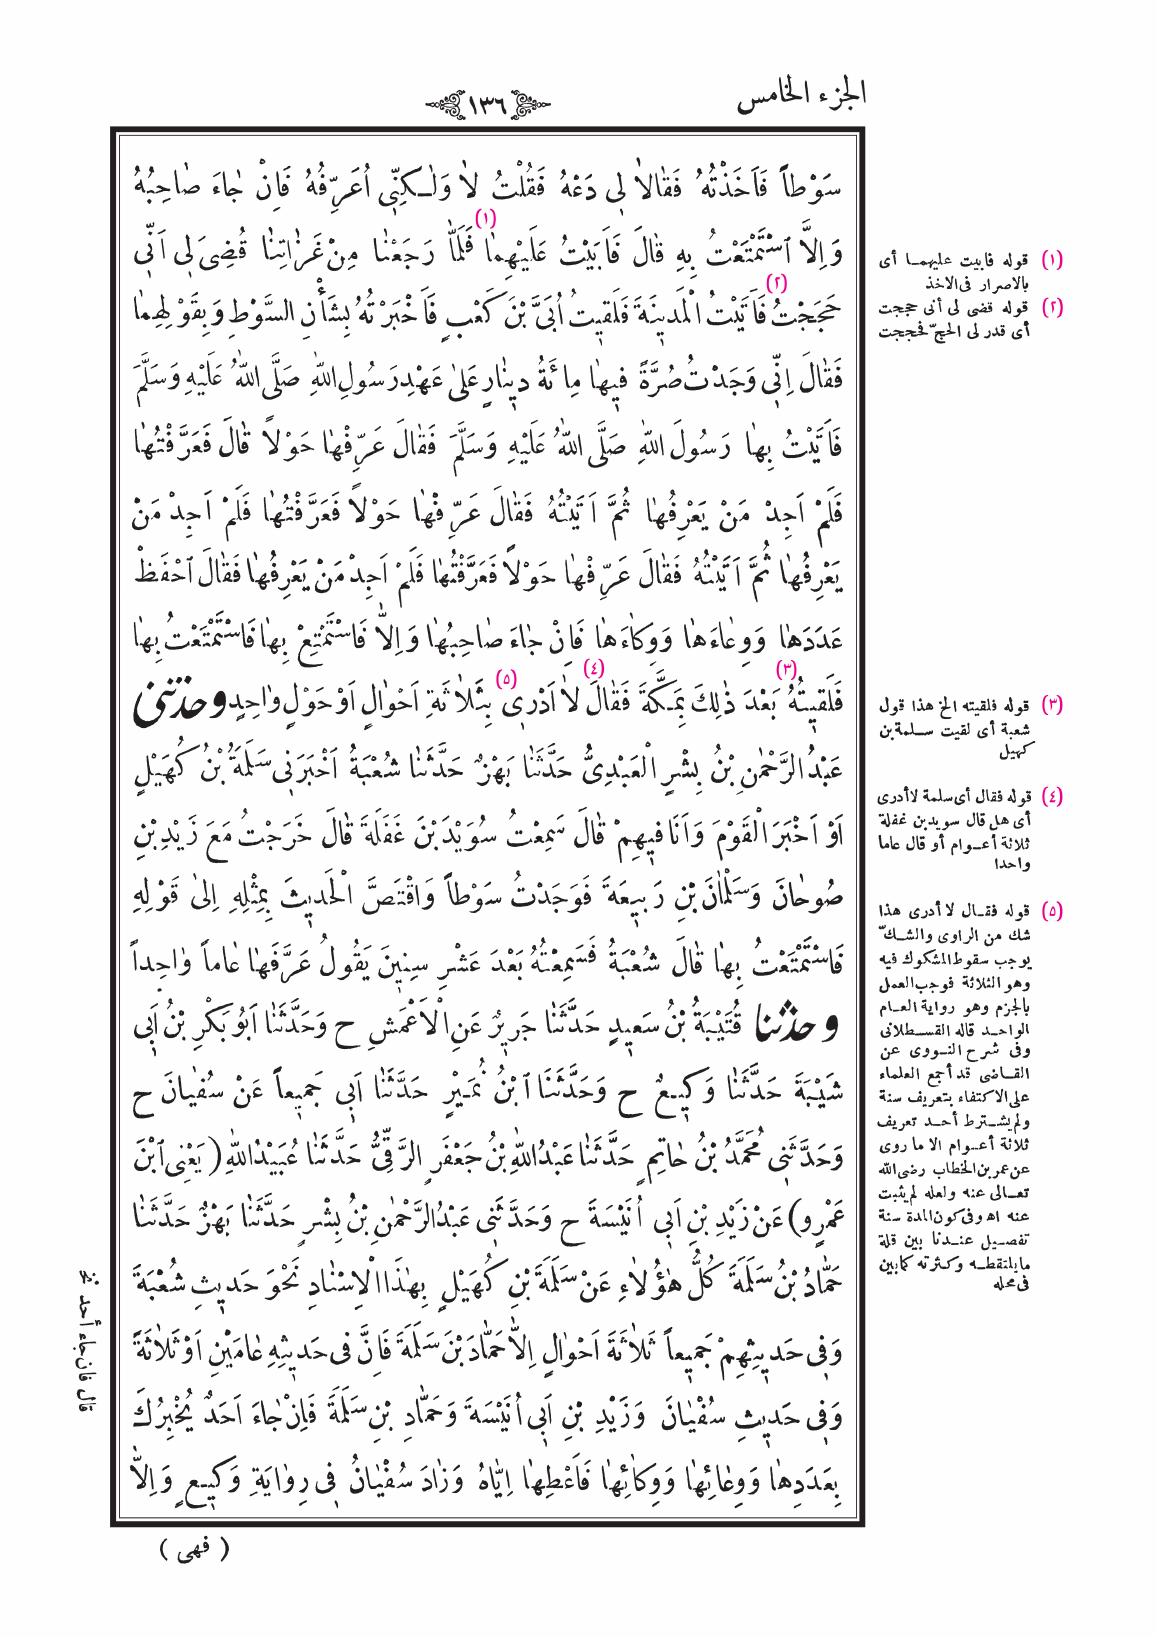 الجزء الخامس
١٣٦
سَوْطاً فَاَخَذْتُهُ فَقَالَا لِي دَعْهُ فَقُلْتُ لَا وَلٰكِنِّي اُعَرِّفُهُ فَاِنْ جَاءَ صَاحِبُهُ
وَاِلَّا ٱسْتَمْتَعْتُ بِهِ قَالَ فَاَبَيْتُ عَلَيْهِمَا (١) فَلَمَّا رَجَعْنَا مِنْ غَزَاتِنَا قُضِىَ لِى اَنِّى
حَجَجْتُ (٢) فَاَتَيْتُ الْمَدِينَةَ فَلَقِيتُ اُبَىَّ بْنَ كَعْبٍ فَاَخْبَرْتُهُ بِشَأْنِ السَّوْطِ وَبِقَوْلِهِمَا
فَقَالَ اِنِّى وَجَدْتُ صُرَّةً فِيهَا مِائَةُ دِينَارٍ عَلىٰ عَهْدِ رَسُولِ اللهِ صَلَّى اللهُ عَلَيْهِ وَسَلَّمَ
فَاَتَيْتُ بِهَا رَسُولَ اللهِ صَلَّى اللهُ عَلَيْهِ وَسَلَّمَ فَقَالَ عَرِّفْهَا حَوْلاً قَالَ فَعَرَّفْتُهَا
فَلَمْ اَجِدْ مَنْ يَعْرِفُهَا ثُمَّ اَتَيْتُهُ فَقَالَ عَرِّفْهَا حَوْلاً فَعَرَّفْتُهَا فَلَمْ اَجِدْ مَنْ
يَعْرِفُهَا ثُمَّ اَتَيْتُهُ فَقَالَ عَرِّفْهَا حَوْلاً فَعَرَّفْتُهَا فَلَمْ اَجِدْ مَنْ يَعْرِفُهَا فَقَالَ ٱحْفَظْ
عَدَدَهَا وَوِعَاءَهَا وَوِكَاءَهَا فَاِنْ جَاءَ صَاحِبُهَا وَاِلَّا فَاسْتَمْتِعْ بِهَا فَاسْتَمْتَعْتُ بِهَا
فَلَقِيتُهُ (٣) بَعْدَ ذٰلِكَ بِمَكَّةَ فَقَالَ (٤) لَا اَدْرِى (٥) بِثَلَاثَةِ اَحْوَالٍ اَوْ حَوْلٍ وَاحِدٍ وحدثنى
عَبْدُ الرَّحْمٰنِ بْنُ بِشْرٍ الْعَبْدِىُّ حَدَّثَنَا بَهْزٌ حَدَّثَنَا شُعْبَةُ اَخْبَرَنِى سَلَمَةُ بْنُ كُهَيْلٍ
اَوْ اَخْبَرَ الْقَوْمَ وَاَنَا فِيهِمْ قَالَ سَمِعْتُ سُوَيْدَ بْنَ غَفَلَةَ قَالَ خَرَجْتُ مَعَ زَيْدِ بْنِ
صُوحَانَ وَسَلْمَانَ بْنِ رَبِيعَةَ فَوَجَدْتُ سَوْطاً وَاقْتَصَّ الْحَدِيثَ بِمِثْلِهِ اِلىٰ قَوْلِهِ
فَاسْتَمْتَعْتُ بِهَا قَالَ شُعْبَةُ فَسَمِعْتُهُ بَعْدَ عَشْرِ سِنِينَ يَقُولُ عَرَّفَهَا عَاماً وَاحِداً
وحدثنا قُتَيْبَةُ بْنُ سَعِيدٍ حَدَّثَنَا جَرِيرٌ عَنِ الْاَعْمَشِ ح وَحَدَّثَنَا اَبُو بَكْرِ بْنُ اَبِى
شَيْبَةَ حَدَّثَنَا وَكِيعٌ ح وَحَدَّثَنَا ٱبْنُ نُمَيْرٍ حَدَّثَنَا اَبِى جَمِيعاً عَنْ سُفْيَانَ ح
وَحَدَّثَنِى مُحَمَّدُ بْنُ حَاتِمٍ حَدَّثَنَا عَبْدُ اللهِ بْنُ جَعْفَرٍ الرَّقِّىُّ حَدَّثَنَا عُبَيْدُ اللهِ (يَعْنِى ٱبْنَ
عَمْرٍو) عَنْ زَيْدِ بْنِ اَبِى اُنَيْسَةَ ح وَحَدَّثَنِى عَبْدُ الرَّحْمٰنِ بْنُ بِشْرٍ حَدَّثَنَا بَهْزٌ حَدَّثَنَا
حَمَّادُ بْنُ سَلَمَةَ كُلُّ هٰؤُلَاءِ عَنْ سَلَمَةَ بْنِ كُهَيْلٍ بِهٰذَا الْاِسْنَادِ نَحْوَ حَدِيثِ شُعْبَةَ
وَفِى حَدِيثِهِمْ جَمِيعاً ثَلَاثَةَ اَحْوَالٍ اِلَّا حَمَّادَ بْنَ سَلَمَةَ فَاِنَّ فِى حَدِيثِهِ عَامَيْنِ اَوْ ثَلَاثَةً
وَفِى حَدِيثِ سُفْيَانَ وَزَيْدِ بْنِ اَبِى اُنَيْسَةَ وَحَمَّادِ بْنِ سَلَمَةَ فَاِنْ جَاءَ اَحَدٌ يُخْبِرُكَ
بِعَدَدِهَا وَوِعَائِهَا وَوِكَائِهَا فَاَعْطِهَا اِيَّاهُ وَزَادَ سُفْيَانُ فِى رِوَايَةِ وَكِيعٍ وَاِلَّا
( فهى )
(١) قوله فابيت عليهما أى
بالاصرار فى الاخذ
(٢) قوله قضى لى أنى حججت
أى قدر لى الحجّ فحججت
(٣) قوله فلقيته الخ هذا قول
شعبة أى لقيت سلمة بن
كهيل
(٤) قوله فقال أى سلمة لا أدرى
أى هل قال سويد بن غفلة
ثلاثة أعوام أو قال عاما
واحدا
(٥) قوله فقال لا أدرى هذا
شك من الراوى والشكّ
يوجب سقوط المشكوك فيه
وهو الثلاثة فوجب العمل
بالجزم وهو رواية العام
الواحد قاله القسطلانى
وفى شرح النووى عن
القاضى قد أجمع العلماء
على الاكتفاء بتعريف سنة
ولم يشترط أحد تعريف
ثلاثة أعوام الا ما روى
عن عمر بن الخطاب رضى الله
تعالى عنه ولعله لم يثبت
عنه اه وفى كون المدة سنة
تفصيل عندنا بين قلة
ما يلتقطه وكثرته كما بين
فى محله
قال فان جاء أحد نخ